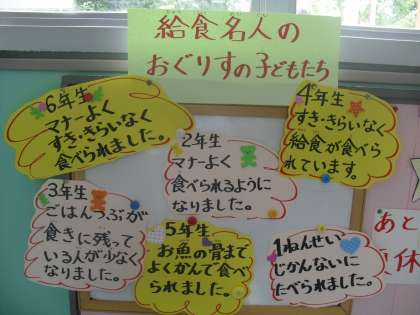 給食名人の
おぐりすの子どもたち
6年生
マナーよく
すき・きらいなく
食べられました。
4年生
すき・きらいなく
給食が食べら
れています。
2年生
マナーよく
食べられるように
なりました。
3年生
ごはんつぶが
食きに残って
いる人が少なく
なりました。
5年生
お魚の骨まで
よくかんで食べ
られました。
1ねんせい
じかんないに
たべられました。
あと
休